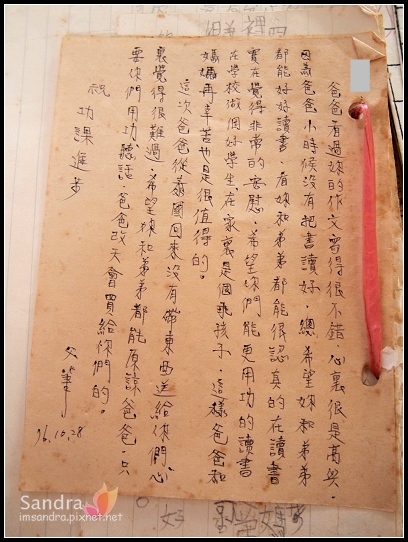 爸爸看過妳的作文寫得很不錯。心裏很是高興。
因為爸爸小時候沒有把書讀好 總希望妳和弟弟
都能好好讀書。看妳和弟弟都能很認真的在讀書
實在覺得非常的安慰。希望你們能更用功的讀書
在學校做個好學生在家裏是個乖孩子。這樣爸爸和
媽媽再辛苦也是很值得的。
這次爸爸從泰國回來沒有帶東西送給你們心
裏覺得很難過。希望妳和弟弟都能原諒爸爸。只
要你們用功。聽話。爸爸改天會買給你們的。
祝
功課進步
父筆
96.10.28
Sandra
imsandra.pixnet.net